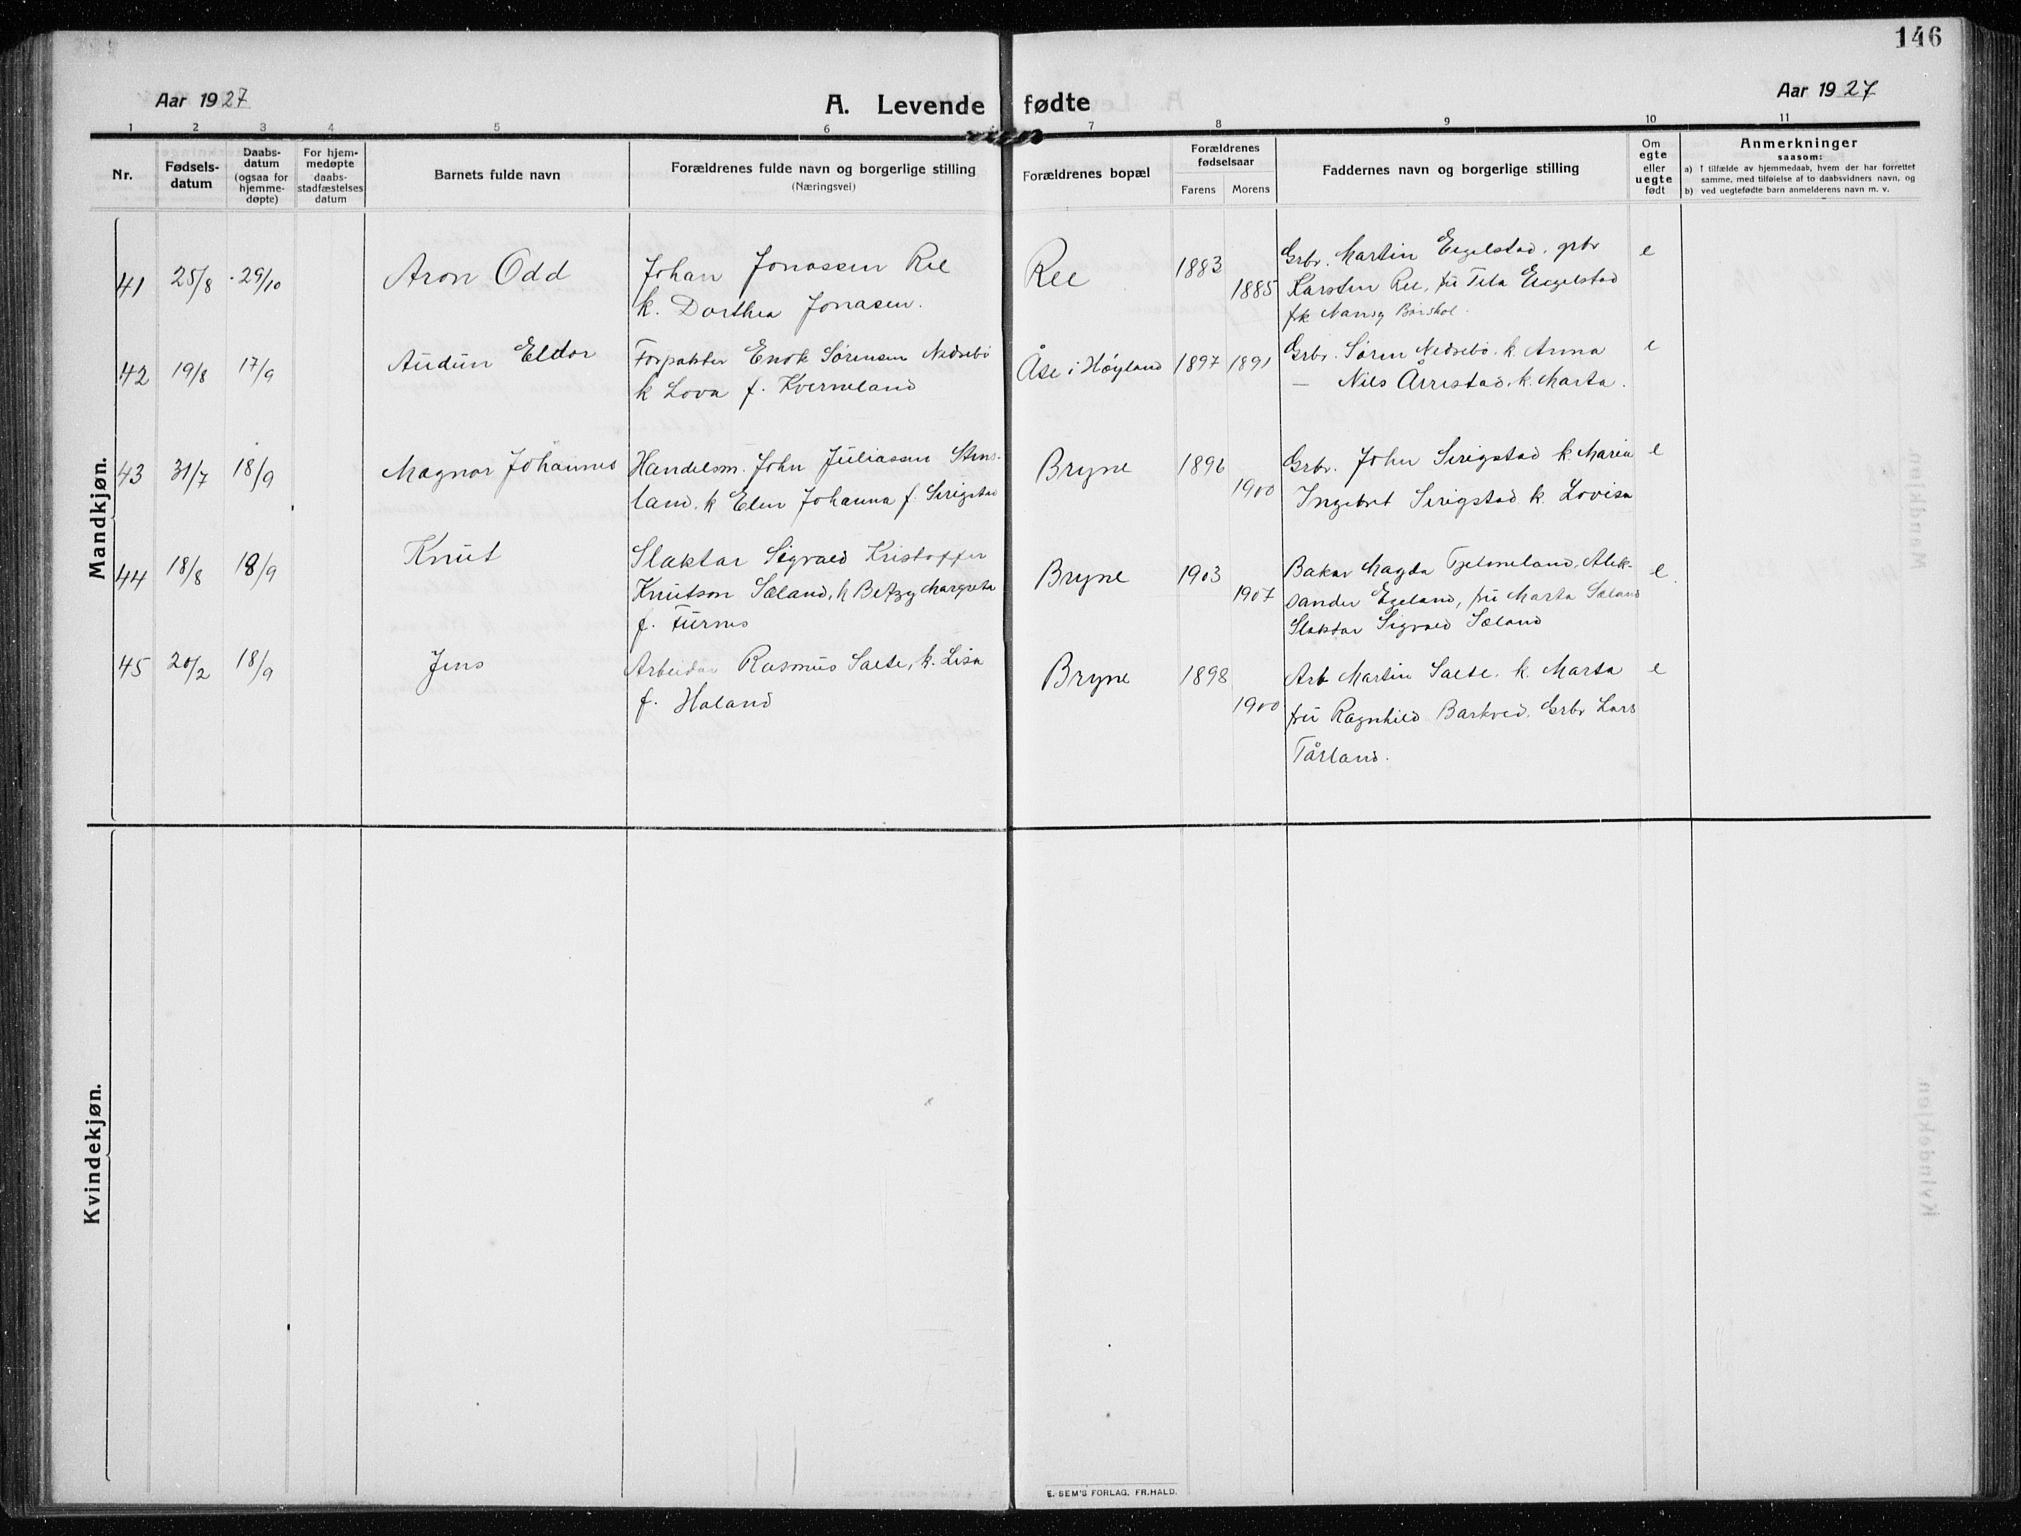 146
Aar 1927
A. Levende fødte
Aar 1927
1 2 3 4 5 6 7 8 9 10 11
Nr.
Fødsels-
datum
Daabs-
datum
(ogsaa for
hjemme-
døpte)
For hjem-
medøpte
daabs-
stadfæstelses
datum
Barnets fulde navn
Forældrenes fulde navn og borgerlige stilling
(Næringsvei)
Forældrenes bopæl
Forældrenes
fødselsaar
Farens Morens
Faddernes navn og borgerlige stilling
Om
egte
eller
uegte
født
Anmerkninger
saasom:
a) I tilfælde av hjemmedaab, hvem der har forrettet
samme, med tilføielse af to daabsvidners navn, og
b) ved uegtefødte barn anmelderens navn m. v.
Mandkjøn.
41 25/8 29/10 Aron Odd
Johan Jonassen Ree
k. Dorthea Jonasen.
Ree 1883 1885
Grbr. Martin Eigelstad, grbr
Karsten Ree, fru Tita Eigelstad
fk Nansy
e
42 19/8 17/9 Audun Eldor
Forpakter Enok Sørensen Nedrebø
k Lova f. Kverneland
Åse i Høyland 1897 1891
Grbr. Søren Nedrebø. k. Anna
— Nils Årrestad. k. Marta.
e
43 31/7 18/9 Magnar Johannes
Handelsm. John Juliassen Stens-
land. k Elen Johanna f. Serigstad
Bryne 1896 1900
Grbr. John Serigstad k. Maria
Ingebret Serigstad k. Lovisa
e
44 18/8 18/9 Knut
Slaktar Sigvald Kristoffer
Knutson Sæland, k Betzy Margreta
f. Furnes
Bryne 1903 1907
Bakar Magda Tjelmeland, Alek-
sander Egeland, fru Marta Sæland
Slaktar Sigvald Sæland
e
45 20/2 18/9 Jens
Arbeidar Rasmus Sæte, k. Lisa
f. Haland
Bryne 1898 1900
Arb Martin Sæte. k. Marta
fru Ragnhild Barkved, Grbr Lars
Tårland.
e
Kvindekjøn.
E. SEM'S FORLAG, FR.HALD.